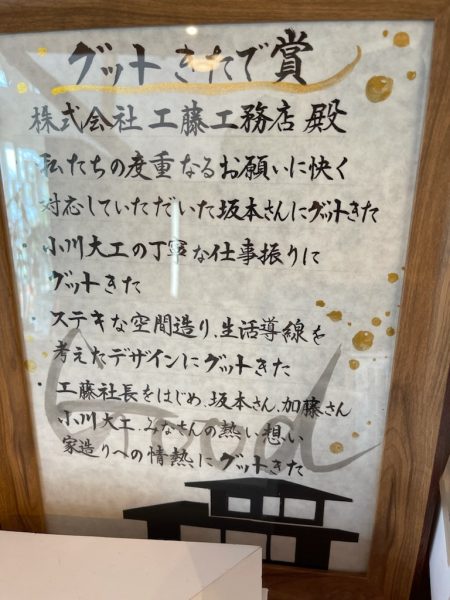 グットきたで賞
株式会社 工藤工務店 殿
私たちの度重なるお願いに快く
対応していただいた坂本さんにグットきた
小川大工の丁寧な仕事振りに
グットきた
ステキな空間造り、生活導線を
考えたデザインにグットきた
工藤社長をはじめ、坂本さん、加藤さん
小川大工、みなさんの熱い想い
家造りへの情熱にグットきた
Good